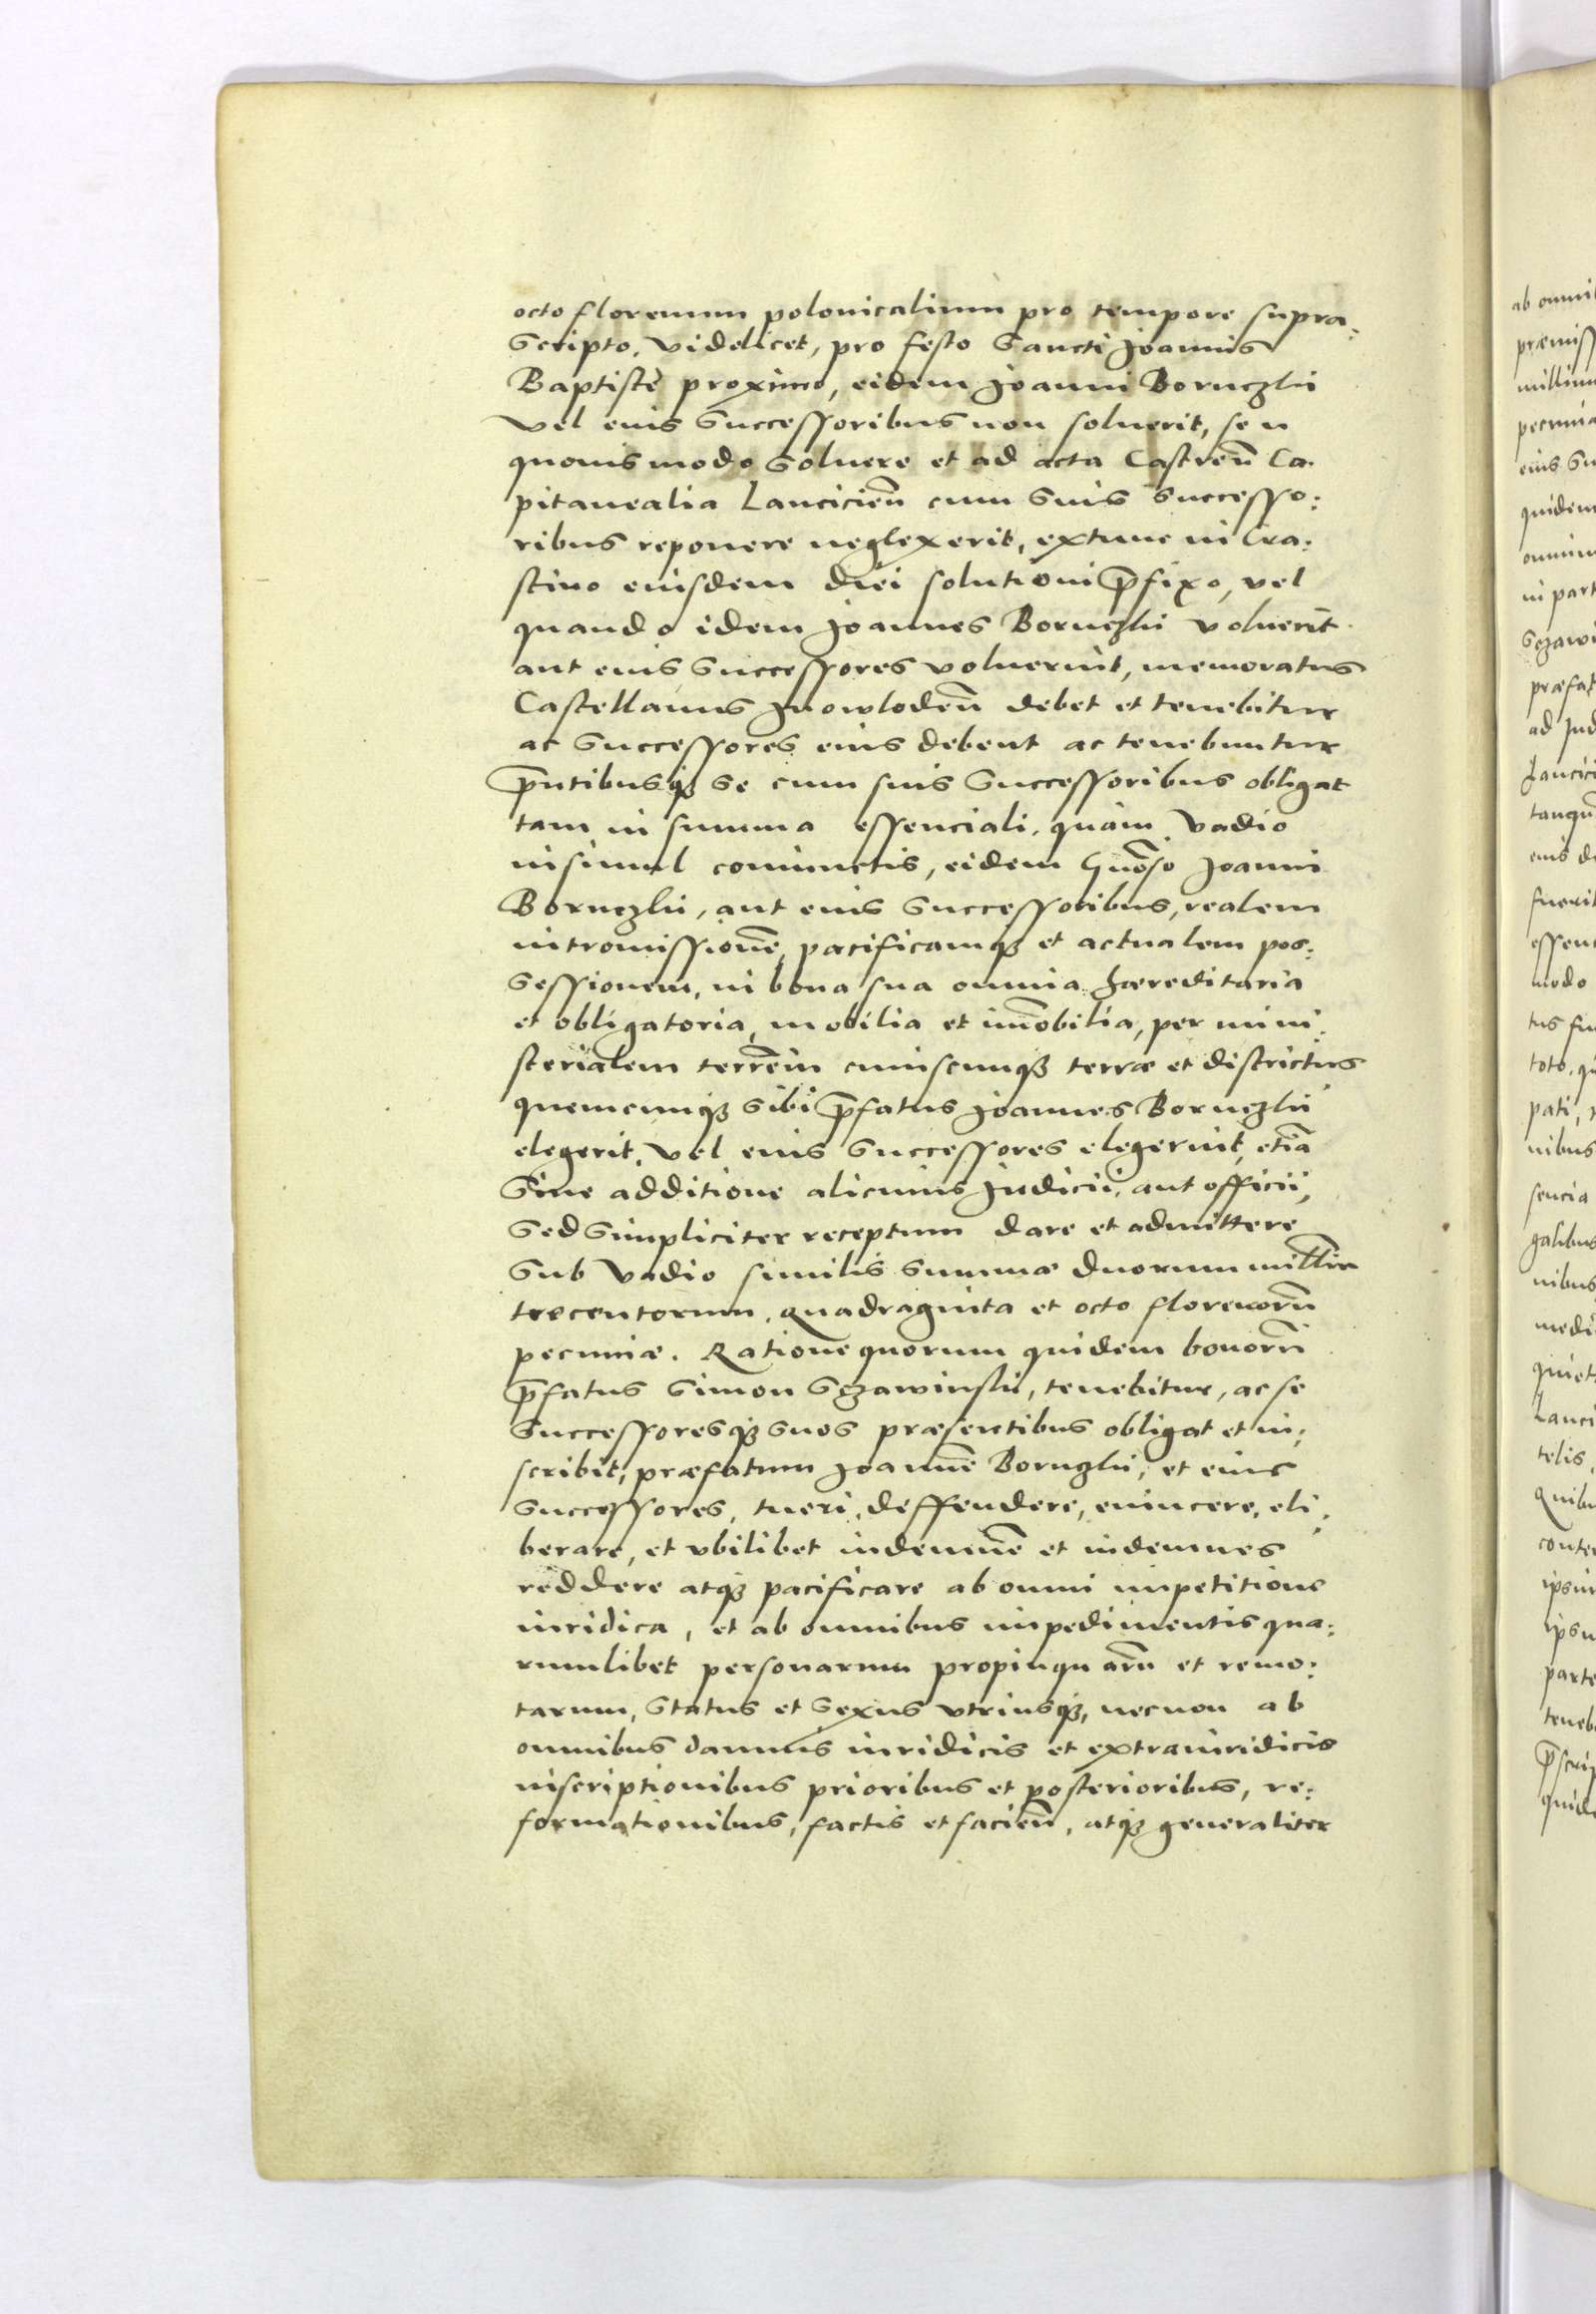 octo florenum polonicalium pro tempore supra:
Scripto, videlicet, pro festo Sancti Joannis
Baptistę proximo, eidem Joanni Bornczki
vel eius Successoribus non soluerit, seu
quouismodo Soluere et ad acta Castren̄ Ca:
pitanealia Lancicien̄ cum Suis Successo:
ribus reponere neglexerit, extunc in Cra:
stino eiusdem diei solutioni p̄fixo, vel
quando idem Joannes Bornczki voluerit
aut eius Successores voluerint, memoratus
Castellanus Jnowloden̄ debet et tenebitur
ac Successores eius debent ac tenebuntur
p̄ntibusq; se cum suis Successoribus obligat
tam in summa essenciali, quàm vadio
insimul coniunctis, eidem Gn̄oso Joanni
Bornczki, aut eius Successoribus, realem
intromissionē, pacificamq; et actualem pos:
Sessionem, in bona sua omnia hæreditaria
et obligatoria, mobilia et im̄obilia, per mini:
sterialem terrēm cuiuscunq; terræ et districtus
quemcunq; Sibi p̄fatus Joannes Bornczki
elegerit, vel eius Successores elegerint, etiā
Sine additione alicuius Judicii, aut officii,
Sed Simpliciter receptum dare et admittere
Sub vadio similis Summæ duorum millīu
trecentorum, quadraginta et octo florenorū
pecuniæ. Ratione quorum quidem bonorū
p̄fatus Simon Sczawinski, tenebitur, ac se
Successoresq; Suos præsentibus obligat et in:
scribit, præfatum Joannē Bornczki, et eius
Successores, tueri, deffendere, euincere, eli:
berare, et vbilibet indemnē et indemnes
reddere atq; pacificare ab omni impetitione
iuridica, et ab omnibus impedimentis qua:
rumlibet personarum propinquarū et remo:
tarum, Status et Sexus vtriusq;, necnon ab
omnibus damnis iuridicis et extraiuridicis
inscriptionibus prioribus et posterioribus, re:
formationibus, factis et facien̄, atq; generaliter